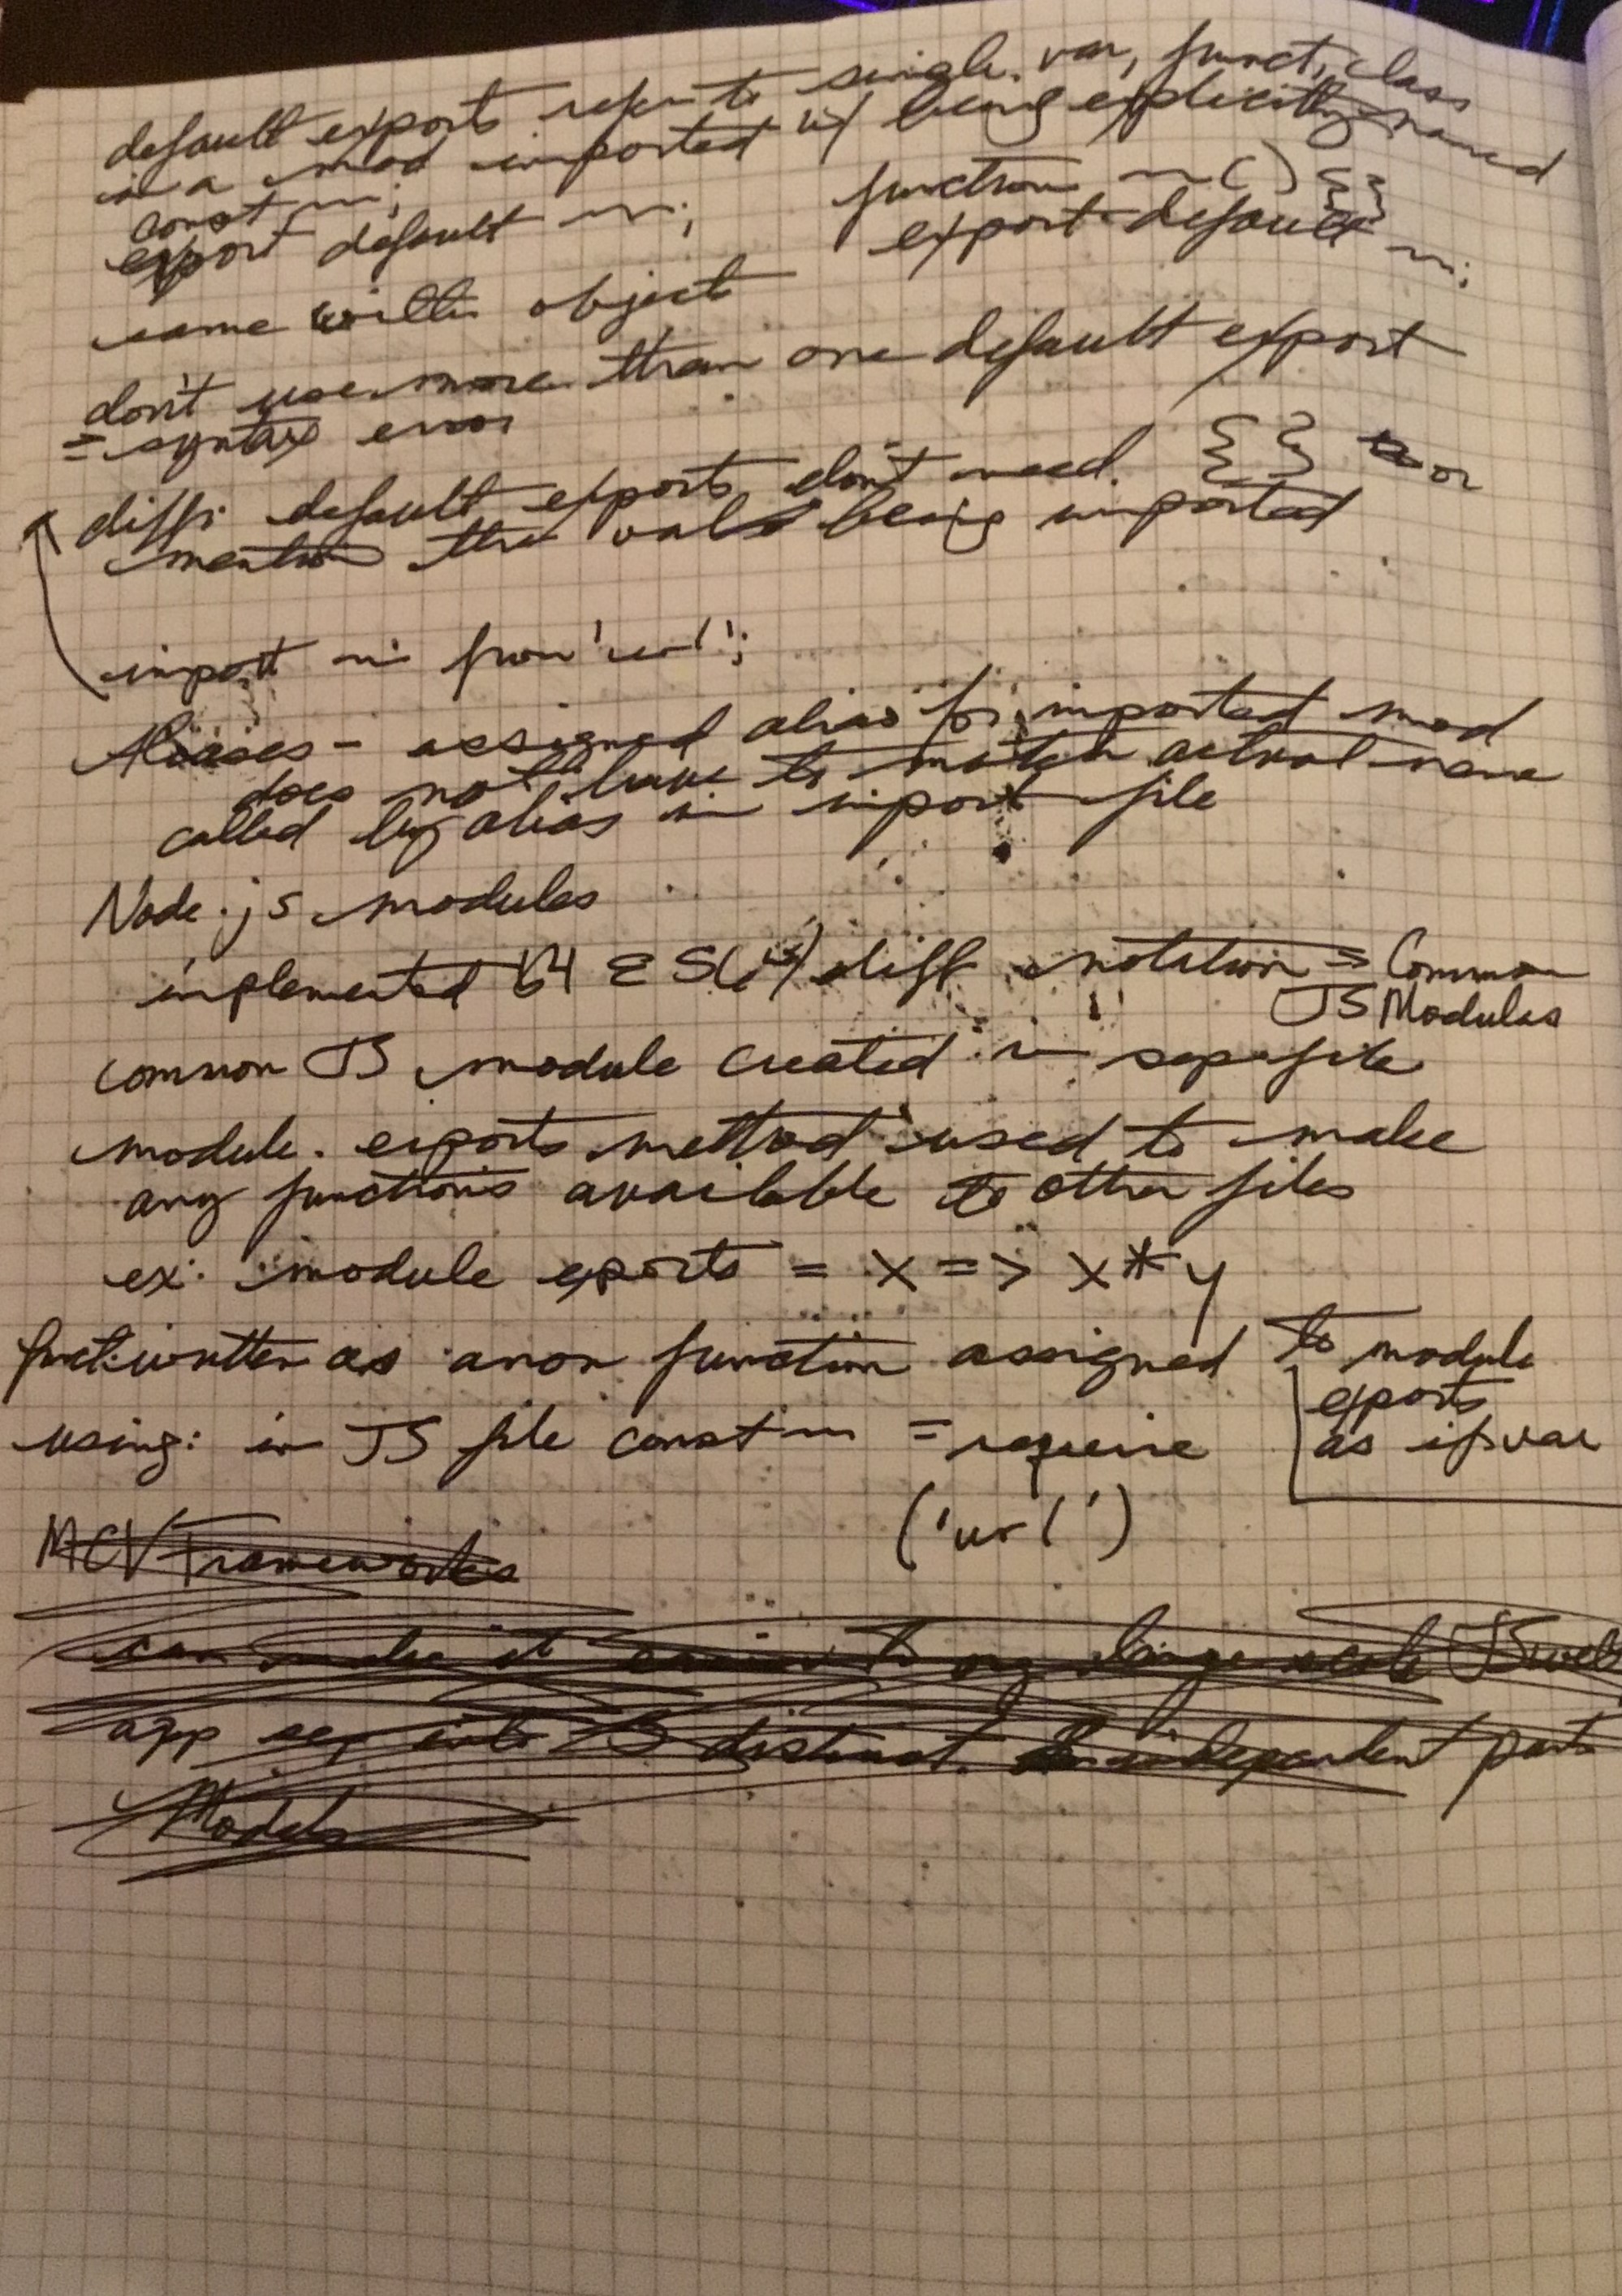 default exports refer to single var, funct, class
in a mod imported w/ being explicitly named
const ~;
export default ~;
function ~() {}
export default ~;
same with object
don't use more than one default export
= syntax error
diff: default exports don't need {} or
mention the val being imported
import ~ from 'url';
Aliases - assigned alias for imported mod
does not have to match actual name
called by alias in import file
Node.js modules
implemented B4 ES6 w/ diff notation = Common
JS Modules
common JS module created in sep file
module.exports method used to make
any functions available to other files
ex: module exports = x => x*y
funct: written as anon function assigned to module
exports
as if var
using: in JS file const ~ = require
('url')
MCV Frameworks
can make it easier to org large scale JS web
app sep into 3 distinct independent parts
Models